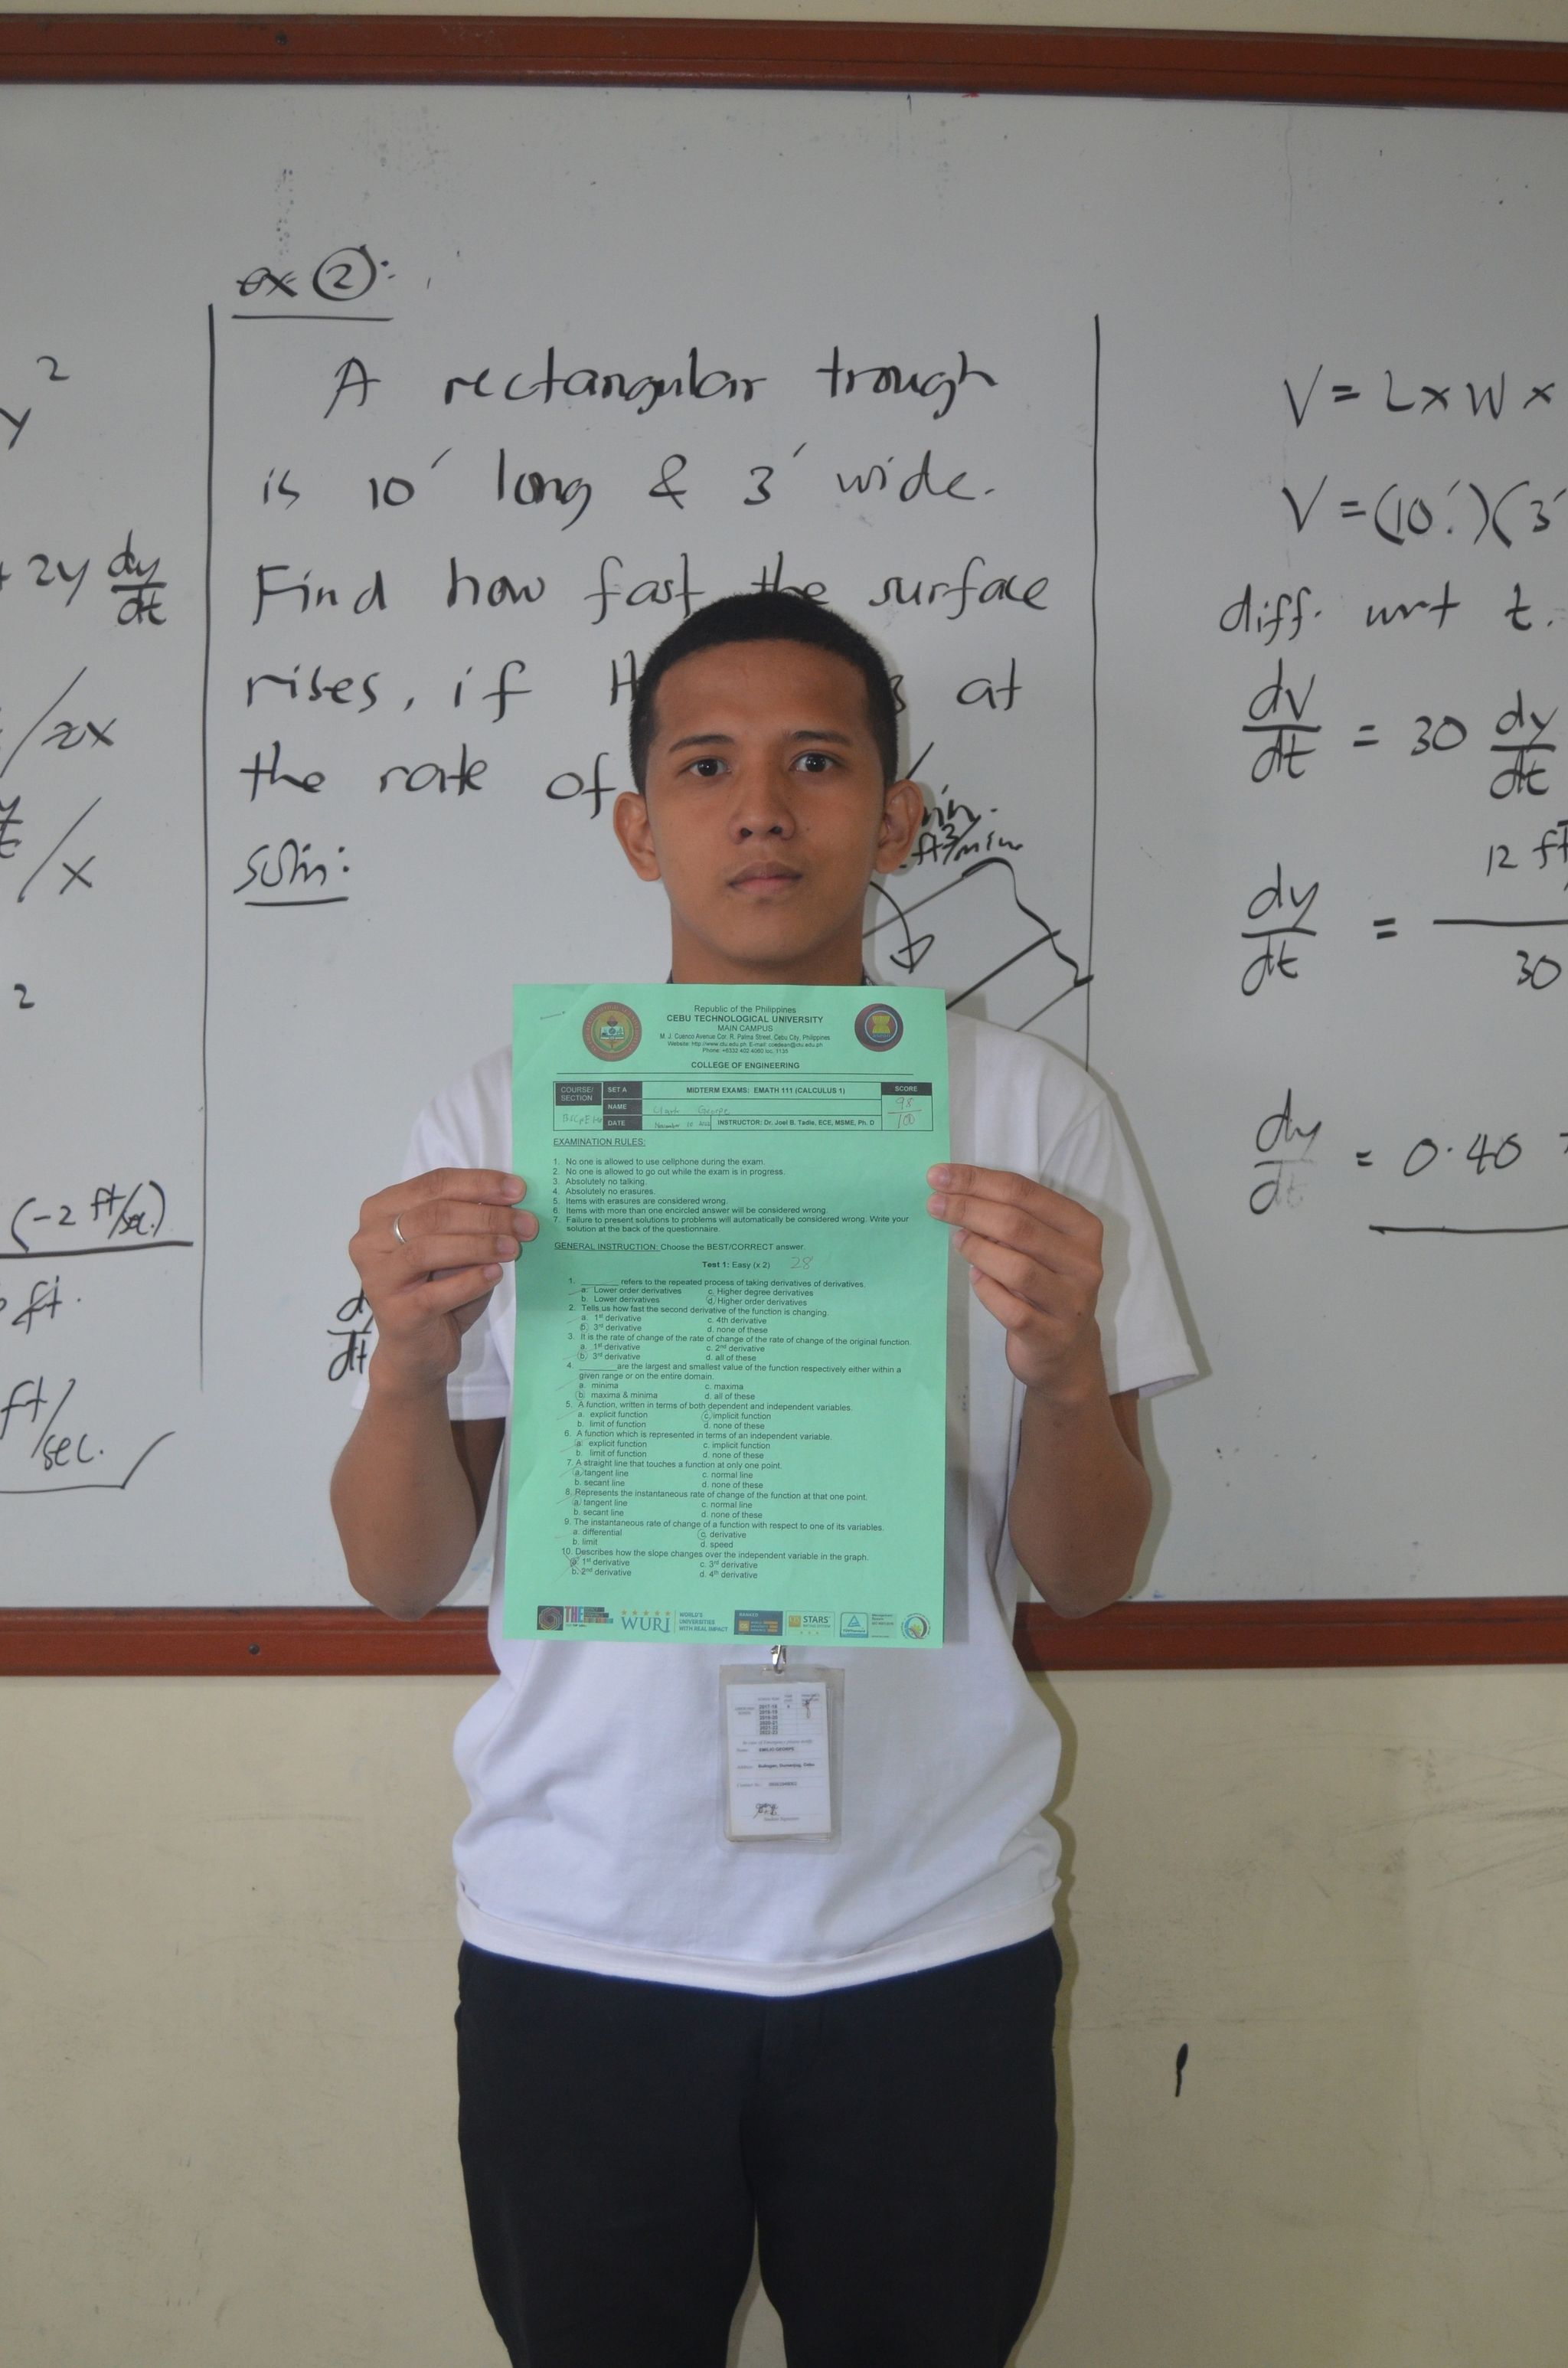 ex ②:
A rectangular trough
is 10' long & 3' wide.
Find how fast the surface
rises, if
at
the rate of
min.
ft³/min.
soln:
2
y
+ 2y dy/dt
/2x
/x
2
(-2 ft/sec.)
ft.
ft/sec.
V = L x W x
V = (10')(3'
diff. wrt t.
dV/dt = 30 dy/dt
dy/dt = 12 ft
30
dy/dt = 0.40
dy/dt
Republic of the Philippines
CEBU TECHNOLOGICAL UNIVERSITY
MAIN CAMPUS
M. J. Cuenco Avenue Cor. R. Palma Street, Cebu City, Philippines
Website: http://www.ctu.edu.ph E-mail: coedean@ctu.edu.ph
Phone: +6332 402 4060 loc. 1135
COLLEGE OF ENGINEERING
COURSE/ SECTION
SET A
MIDTERM EXAMS: EMATH 111 (CALCULUS 1)
SCORE
NAME
98/100
DATE November
INSTRUCTOR: Dr. Joel B. Tadle, ECE, MSME, Ph. D
EXAMINATION RULES:
1. No one is allowed to use cellphone during the exam.
2. No one is allowed to go out while the exam is in progress.
3. Absolutely no talking.
4. Absolutely no erasures.
5. Items with erasures are considered wrong.
6. Items with more than one encircled answer will be considered wrong.
7. Failure to present solutions to problems will automatically be considered wrong. Write your
solution at the back of the questionnaire.
GENERAL INSTRUCTION: Choose the BEST/CORRECT answer.
Test 1: Easy (x 2) 28
1. ________ refers to the repeated process of taking derivatives of derivatives.
a. Lower order derivatives c. Higher degree derivatives
b. Lower derivatives d. Higher order derivatives
2. Tells us how fast the second derivative of the function is changing.
a. 1st derivative c. 4th derivative
b. 3rd derivative d. none of these
3. It is the rate of change of the rate of change of the rate of change of the original function.
a. 1st derivative c. 2nd derivative
b. 3rd derivative d. all of these
4. ________are the largest and smallest value of the function respectively either within a
given range or on the entire domain.
a. minima c. maxima
b. maxima & minima d. all of these
5. A function, written in terms of both dependent and independent variables.
a. explicit function c. implicit function
b. limit of function d. none of these
6. A function which is represented in terms of an independent variable.
a. explicit function c. implicit function
b. limit of function d. none of these
7. A straight line that touches a function at only one point.
a. tangent line c. normal line
b. secant line d. none of these
8. Represents the instantaneous rate of change of the function at that one point.
a. tangent line c. normal line
b. secant line d. none of these
9. The instantaneous rate of change of a function with respect to one of its variables.
a. differential c. derivative
b. limit d. speed
10. Describes how the slope changes over the independent variable in the graph.
a. 1st derivative c. 3rd derivative
b. 2nd derivative d. 4th derivative
THE
WURI
WORLD'S
UNIVERSITIES
WITH REAL IMPACT
STARS
2017-18
2018-19
2019-20
2020-21
2021-22
2022-23